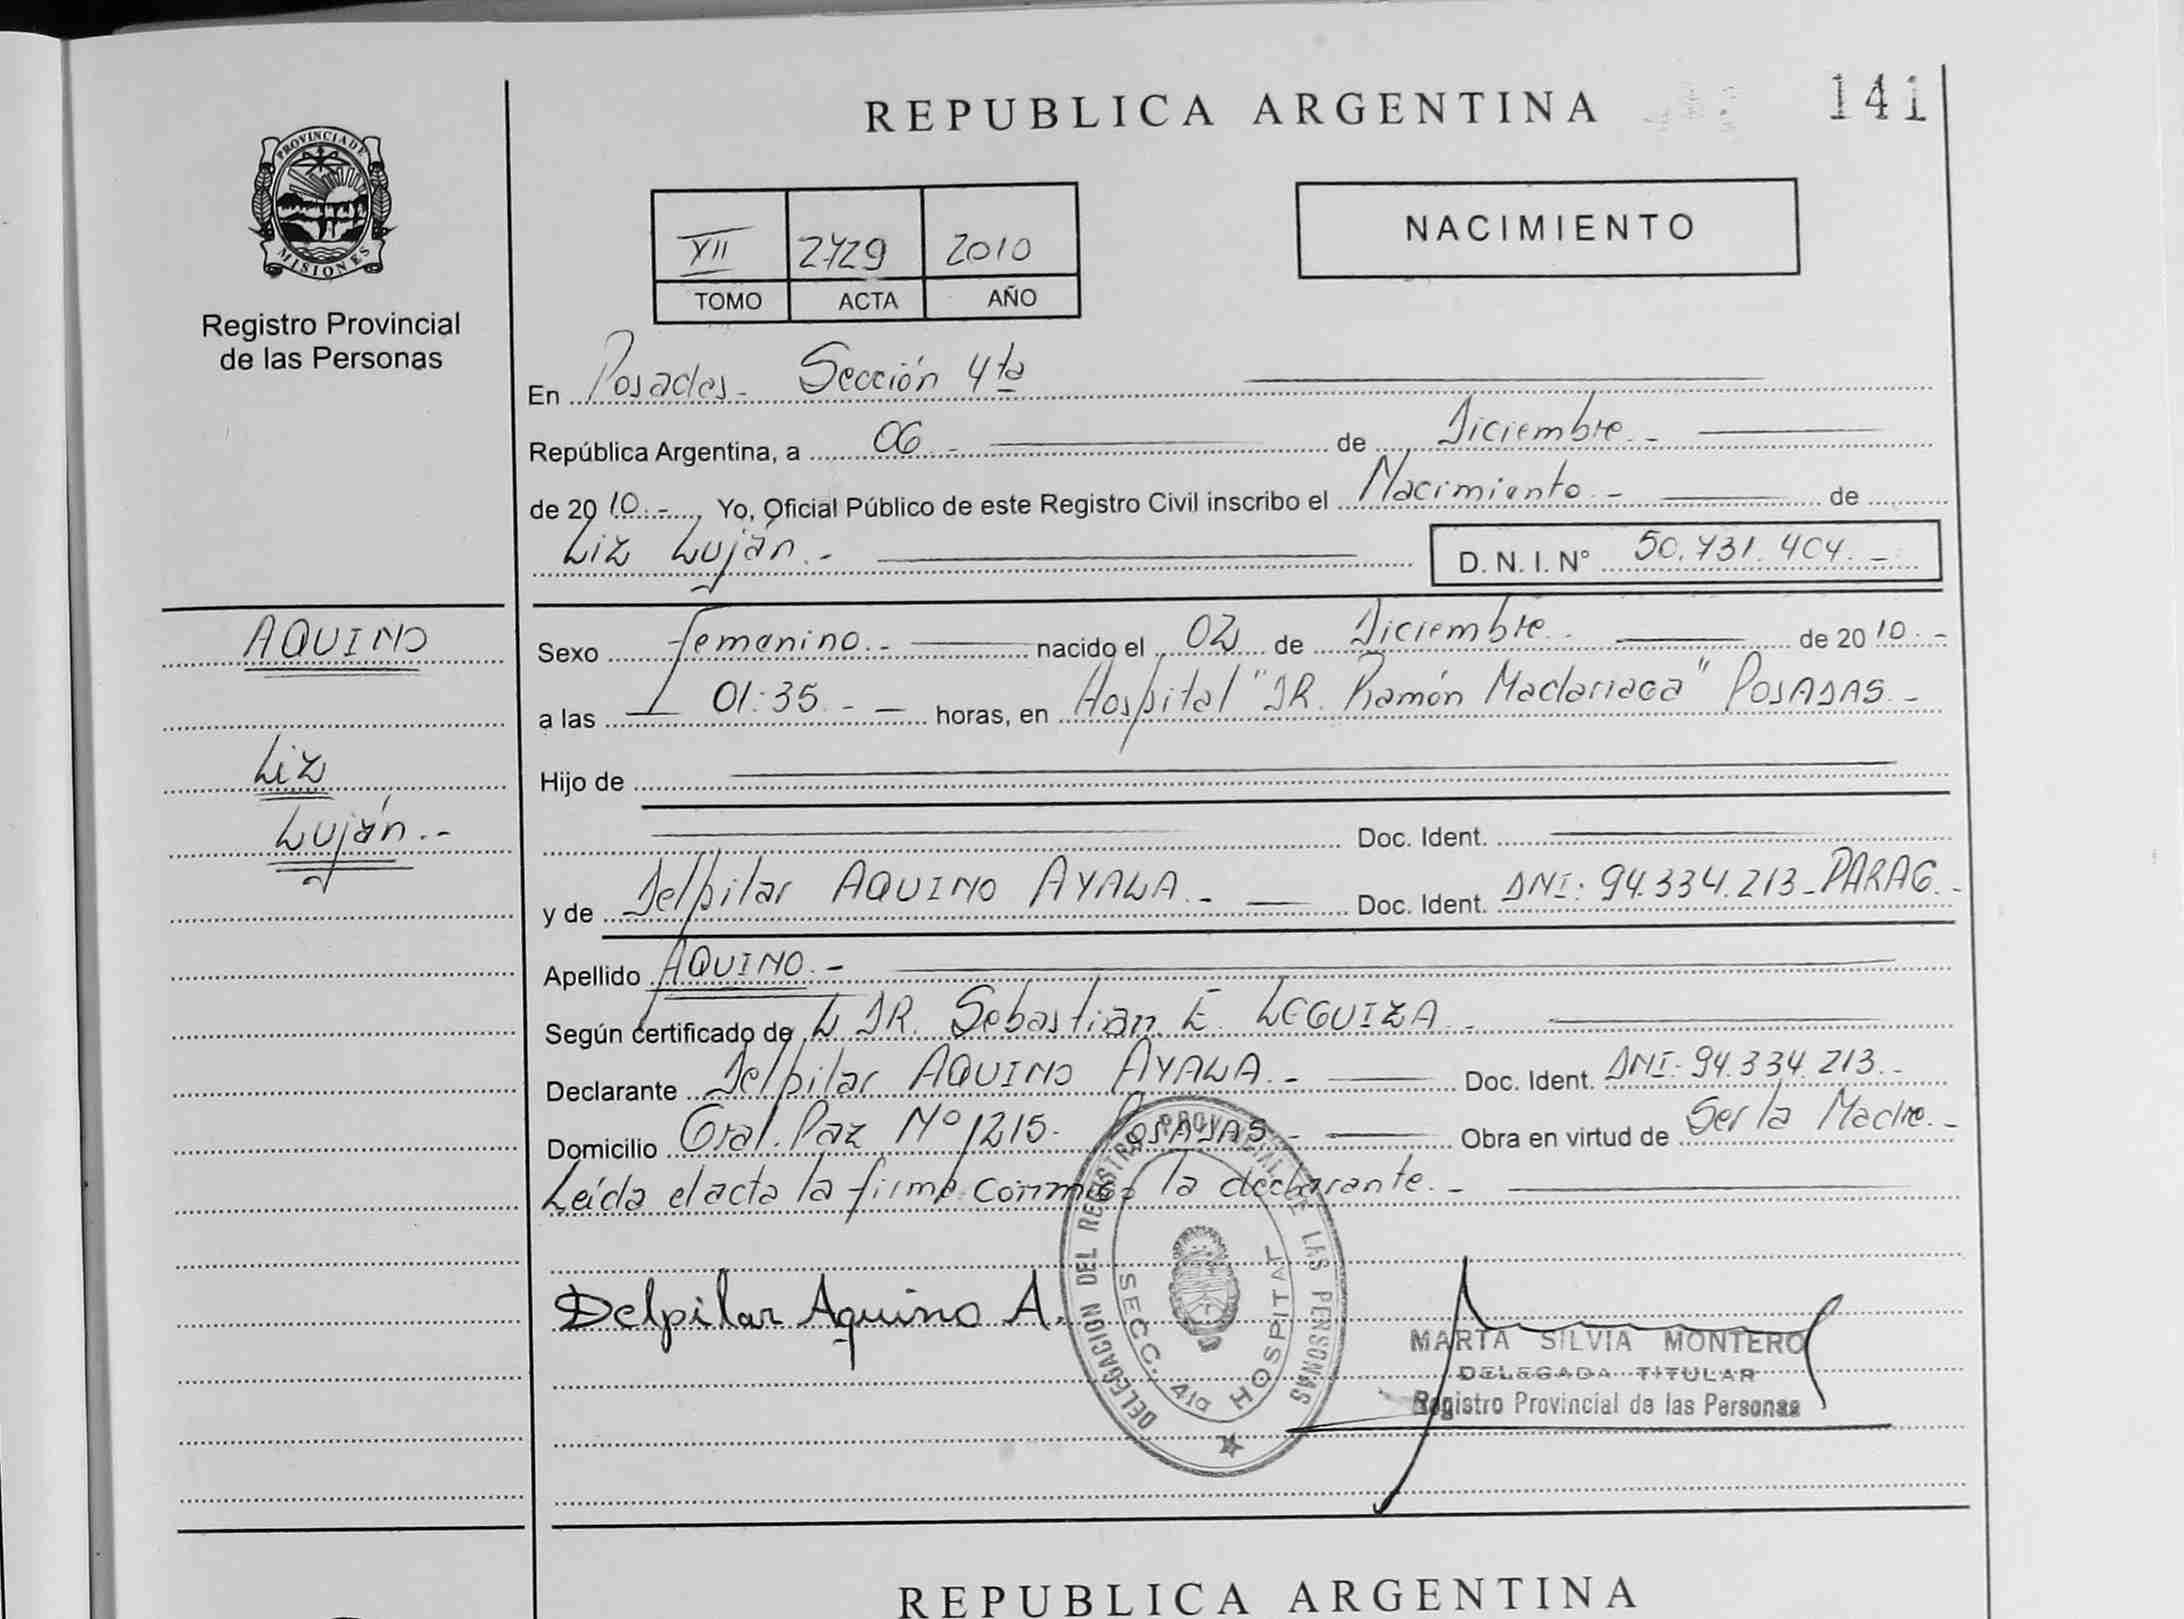 REPUBLICA ARGENTINA
141
PROVINCIA DE
MISIONES
Registro Provincial
de las Personas
XII 2729 2010
TOMO ACTA AÑO
NACIMIENTO
En Posadas - Sección 4ta
República Argentina, a 06 - de Diciembre -
de 2010. - Yo, Oficial Público de este Registro Civil inscribo el Nacimiento - de
Liz Luján - D. N. I. N° 50.731.404. -
AQUINO
Liz
Luján. -
Sexo femenino. - nacido el 02 de Diciembre. de 2010. -
a las 01:35 - - horas, en Hospital "DR. Ramón Madariaga" POSADAS. -
Hijo de
Doc. Ident.
y de Delpilar AQUINO AYALA. - Doc. Ident. DNI: 94.334.213 - PARAG. -
Apellido AQUINO. -
Según certificado de DR. Sebastián E. LEGUIZA -
Declarante Delpilar AQUINO AYALA. - Doc. Ident. DNI: 94.334.213. -
Domicilio Gral. Paz N° 1215. POSADAS - Obra en virtud de Ser la Madre. -
Leída el acta la firma conmigo la declarante. -
Delpilar Aquino A.
DELEGACION DEL REGISTRO PROVINCIAL DE LAS PERSONAS
SECC. 4ta HOSPITAL
MARTA SILVIA MONTERO
DELEGADA TITULAR
Registro Provincial de las Personas
REPUBLICA ARGENTINA